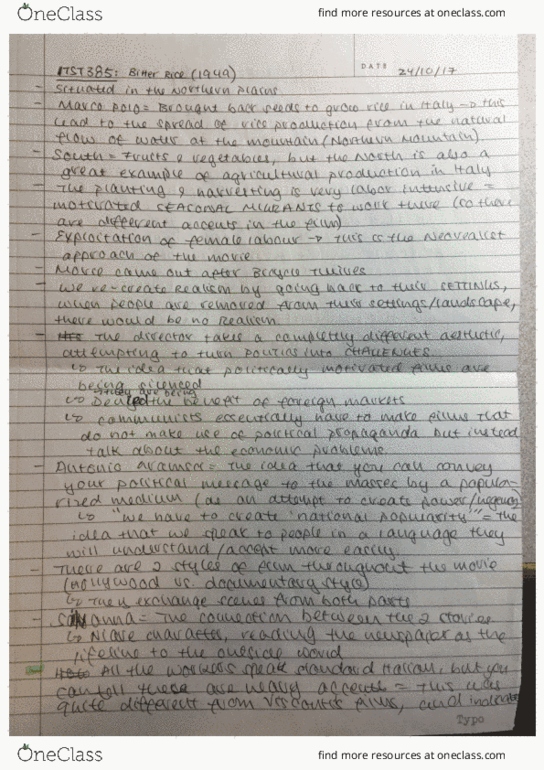 OneClass find more resources at oneclass.com
ITST385: Bitter Rice (1949) DATE 24/10/17
- Situated in the Northern Plains
- Marco Polo = Brought back seeds to grow rice in Italy → this
lead to the spread of rice production from the natural
flow of water at the mountain (Northern Mountain).
- South = Fruits & vegetables, but the North is also a
great example of agricultural production in Italy
- The planting & harvesting is very labor intensive =
motivated SEASONAL MIGRANTS to work there (so there
are different accents in the film)
- Exploitation of female labour → This is the Neorealist
approach of the movie
- Movie came out after Bicycle Thieves
- We re-create Realism by going back to their SETTINGS,
when people are removed from these settings/landscape,
there would be no Realism.
- The director takes a completely different aesthetic,
attempting to turn politics into CHALLENGES
↳ The idea that politically motivated films are
being silenced
they are being
↳ Denied the benefit of foreign markets
↳ communists essentially have to make films that
do not make use of political propaganda but instead
talk about the economic problems.
- Antonio = The idea that you can convey
your political message to the masses by a popula-
rized medium (as an attempt to create power/
↳ "we have to create 'national popularity'" = The
idea that we speak to people in a language they
will understand/accept more easily.
- There are 2 styles of film throughout the movie
(Hollywood vs. documentary style)
↳ They exchange scenes from both parts
- = The connection between the 2 stories
↳ Naive character, reading the newspaper as the
lifeline to the outside world
- All the workers speak standard Italian, but you
can tell there are heavy accents = This was
quite different from Visconti's films, and
Typo
OneClass find more resources at oneclass.com